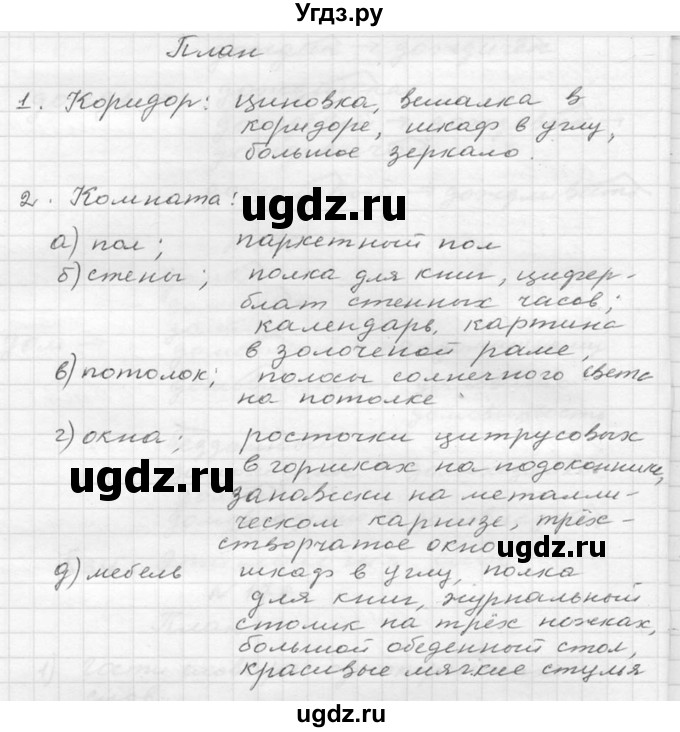 Угдз.ру
План
1. Коридор: циновка, вешалка в
коридоре, шкаф в углу,
большое зеркало.
2. Комната:
ugdz.ru
а) пол; паркетный пол
б) стены; полка для книг, цифер-
блат стенных часов;
календарь, картина
в золоченой раме,
в) потолок; полосы солнечного света
на потолке
г) окна; росточки цитрусовых
в горшках на подоконнике,
ugdz.ru
занавески на металли-
ческом карнизе, трёх-
створчатое окно
ugdz.ru
д) мебель шкаф в углу, полка
для книг, журнальный
столик на трёх ножках,
большой обеденный стол,
красивые мягкие стулья
ugdz.ru